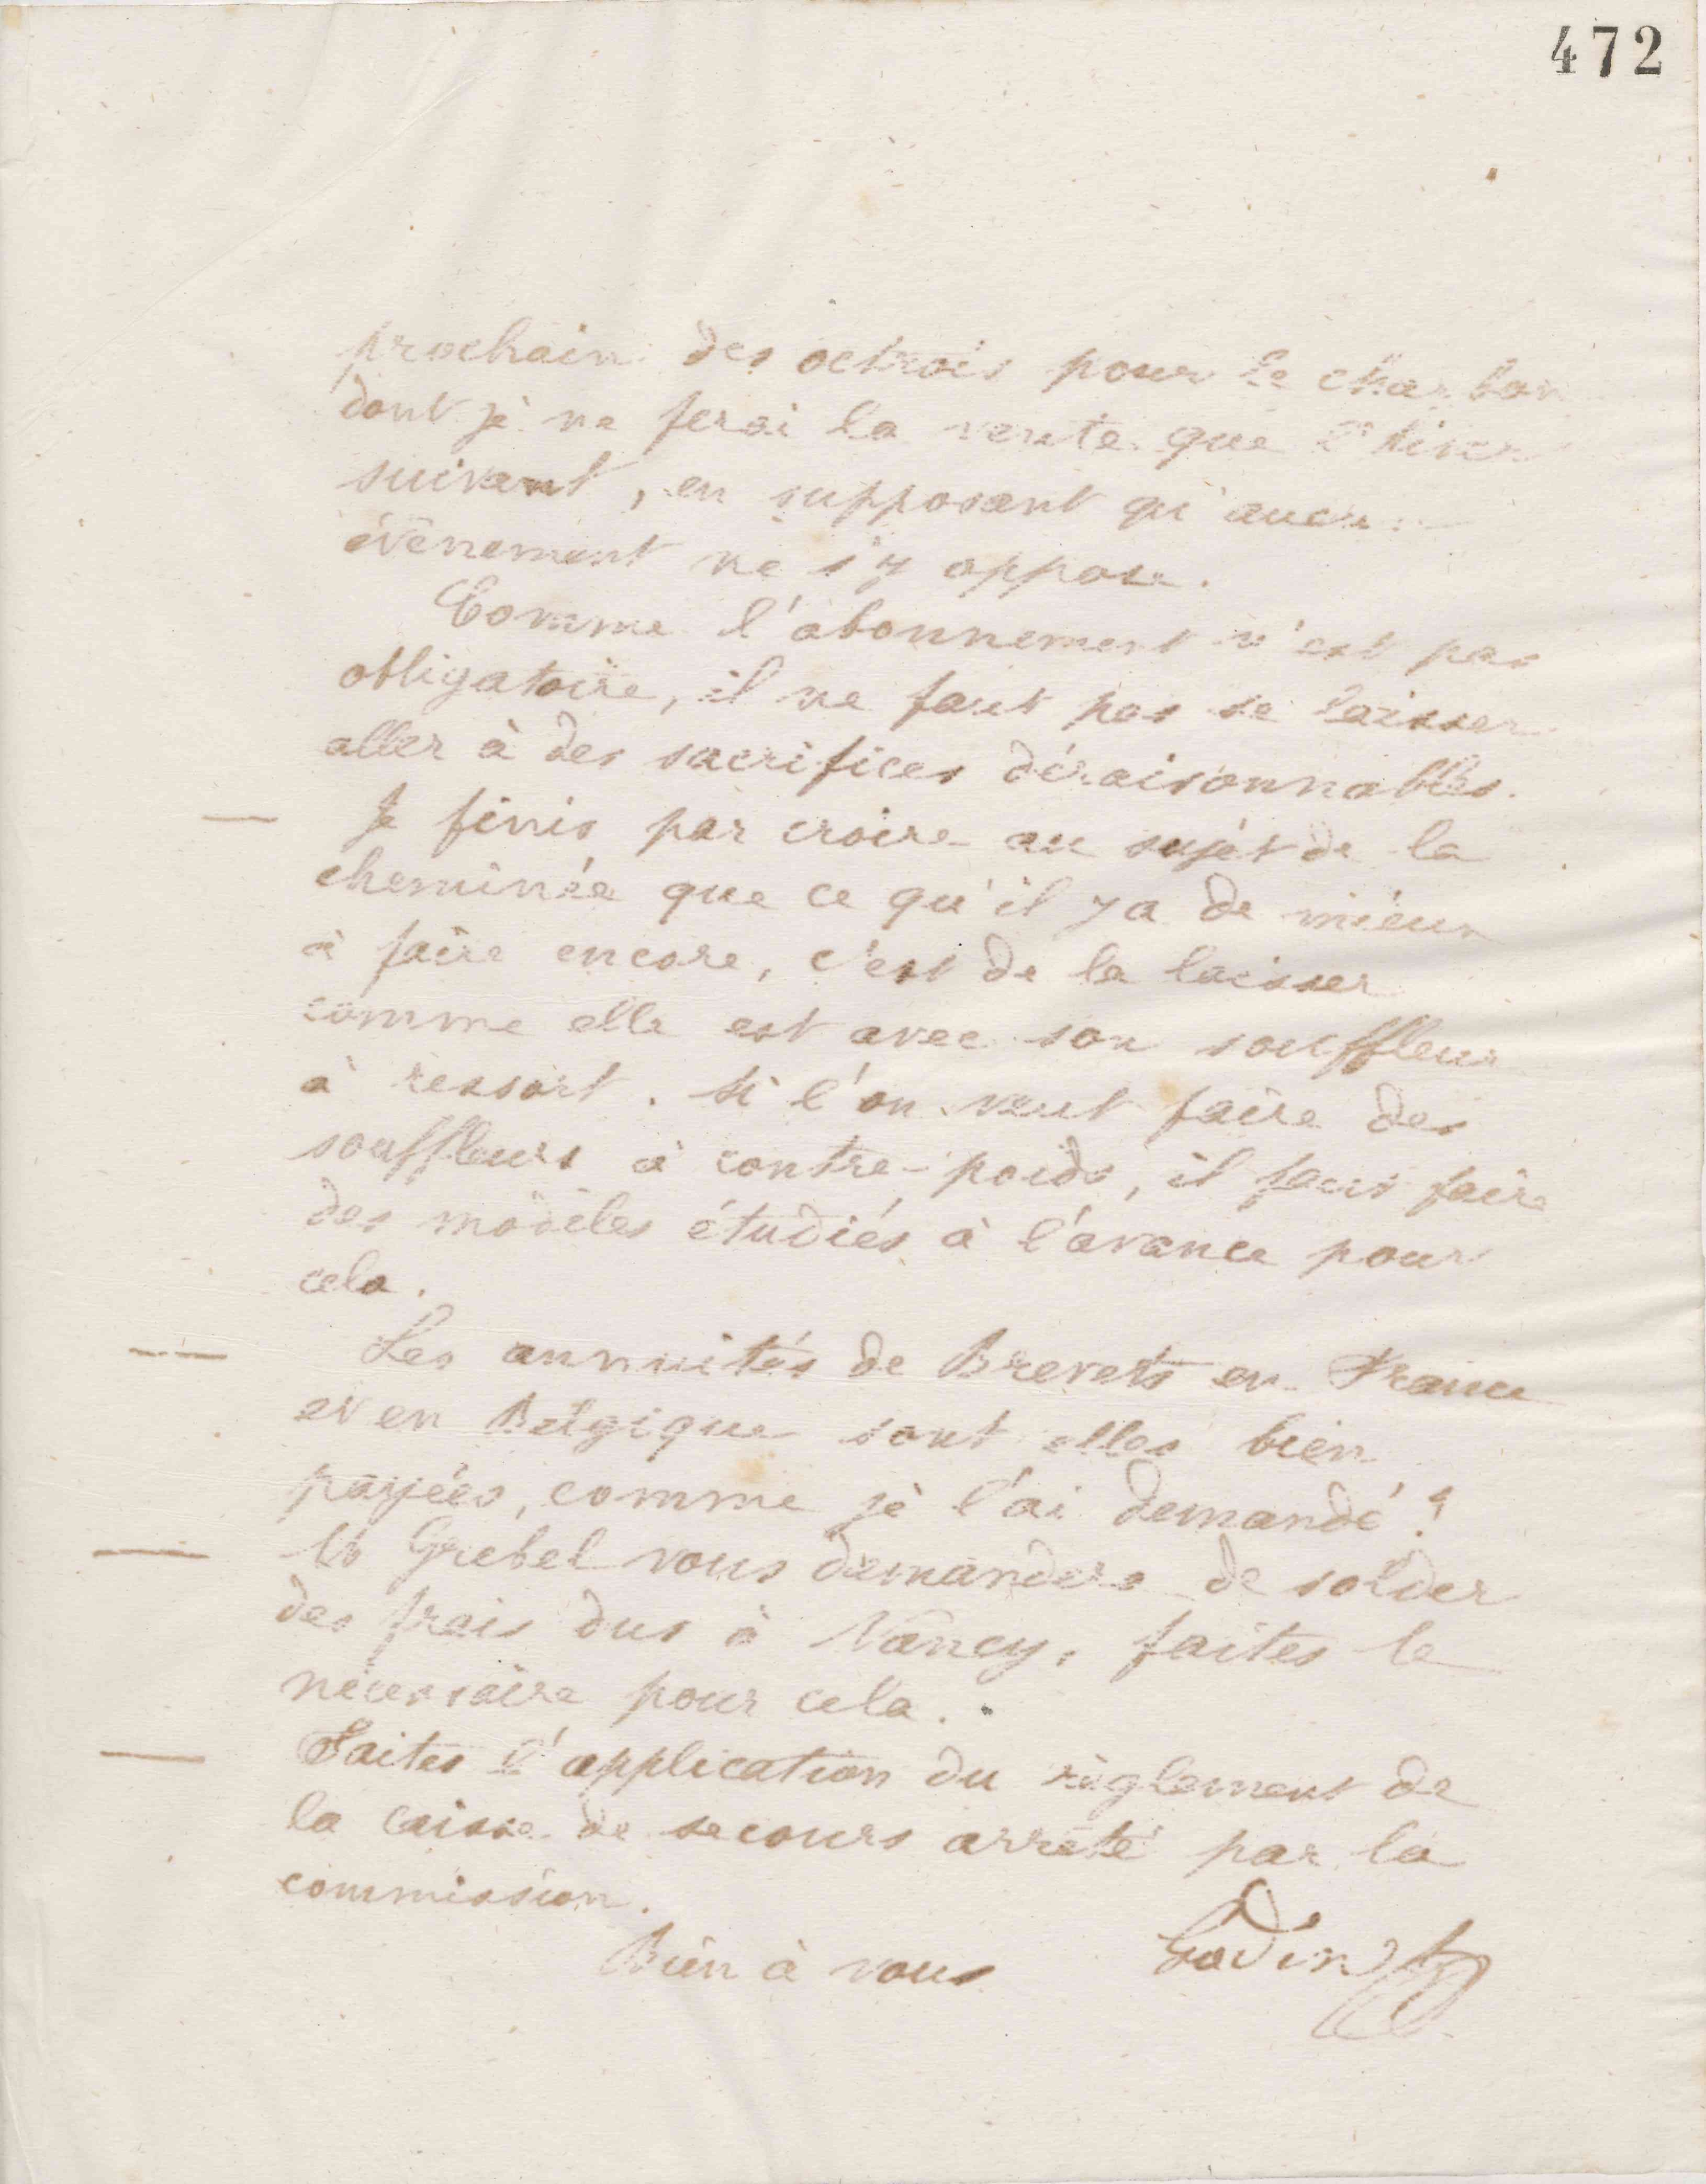 472
prochain des octrois pour le charbon
dont je ne ferai la vente que l'hiver
suivant, en supposant qu'aucun
évènement ne s'y oppose.
Comme l'abonnement n'est pas
obligatoire, il ne faut pas se laisser
aller à des sacrifices déraisonnables.
— Je finis par croire au sujet de la
cheminée que ce qu'il y a de mieux
à faire encore, c'est de la laisser
comme elle est avec son souffleur
à ressort. Si l'on veut faire des
souffleurs à contre-poids, il faut faire
des modèles étudiés à l'avance pour
cela.
— Les annuités de Brevets en France
et en Belgique sont elles bien
payées, comme je l'ai demandé?
— M Grebel vous demandera de solder
des frais dus à Nancy, faites le
nécessaire pour cela.
— Faites l'application du règlement de
la caisse de secours arrêté par la
commission.
Bien à vous Godin